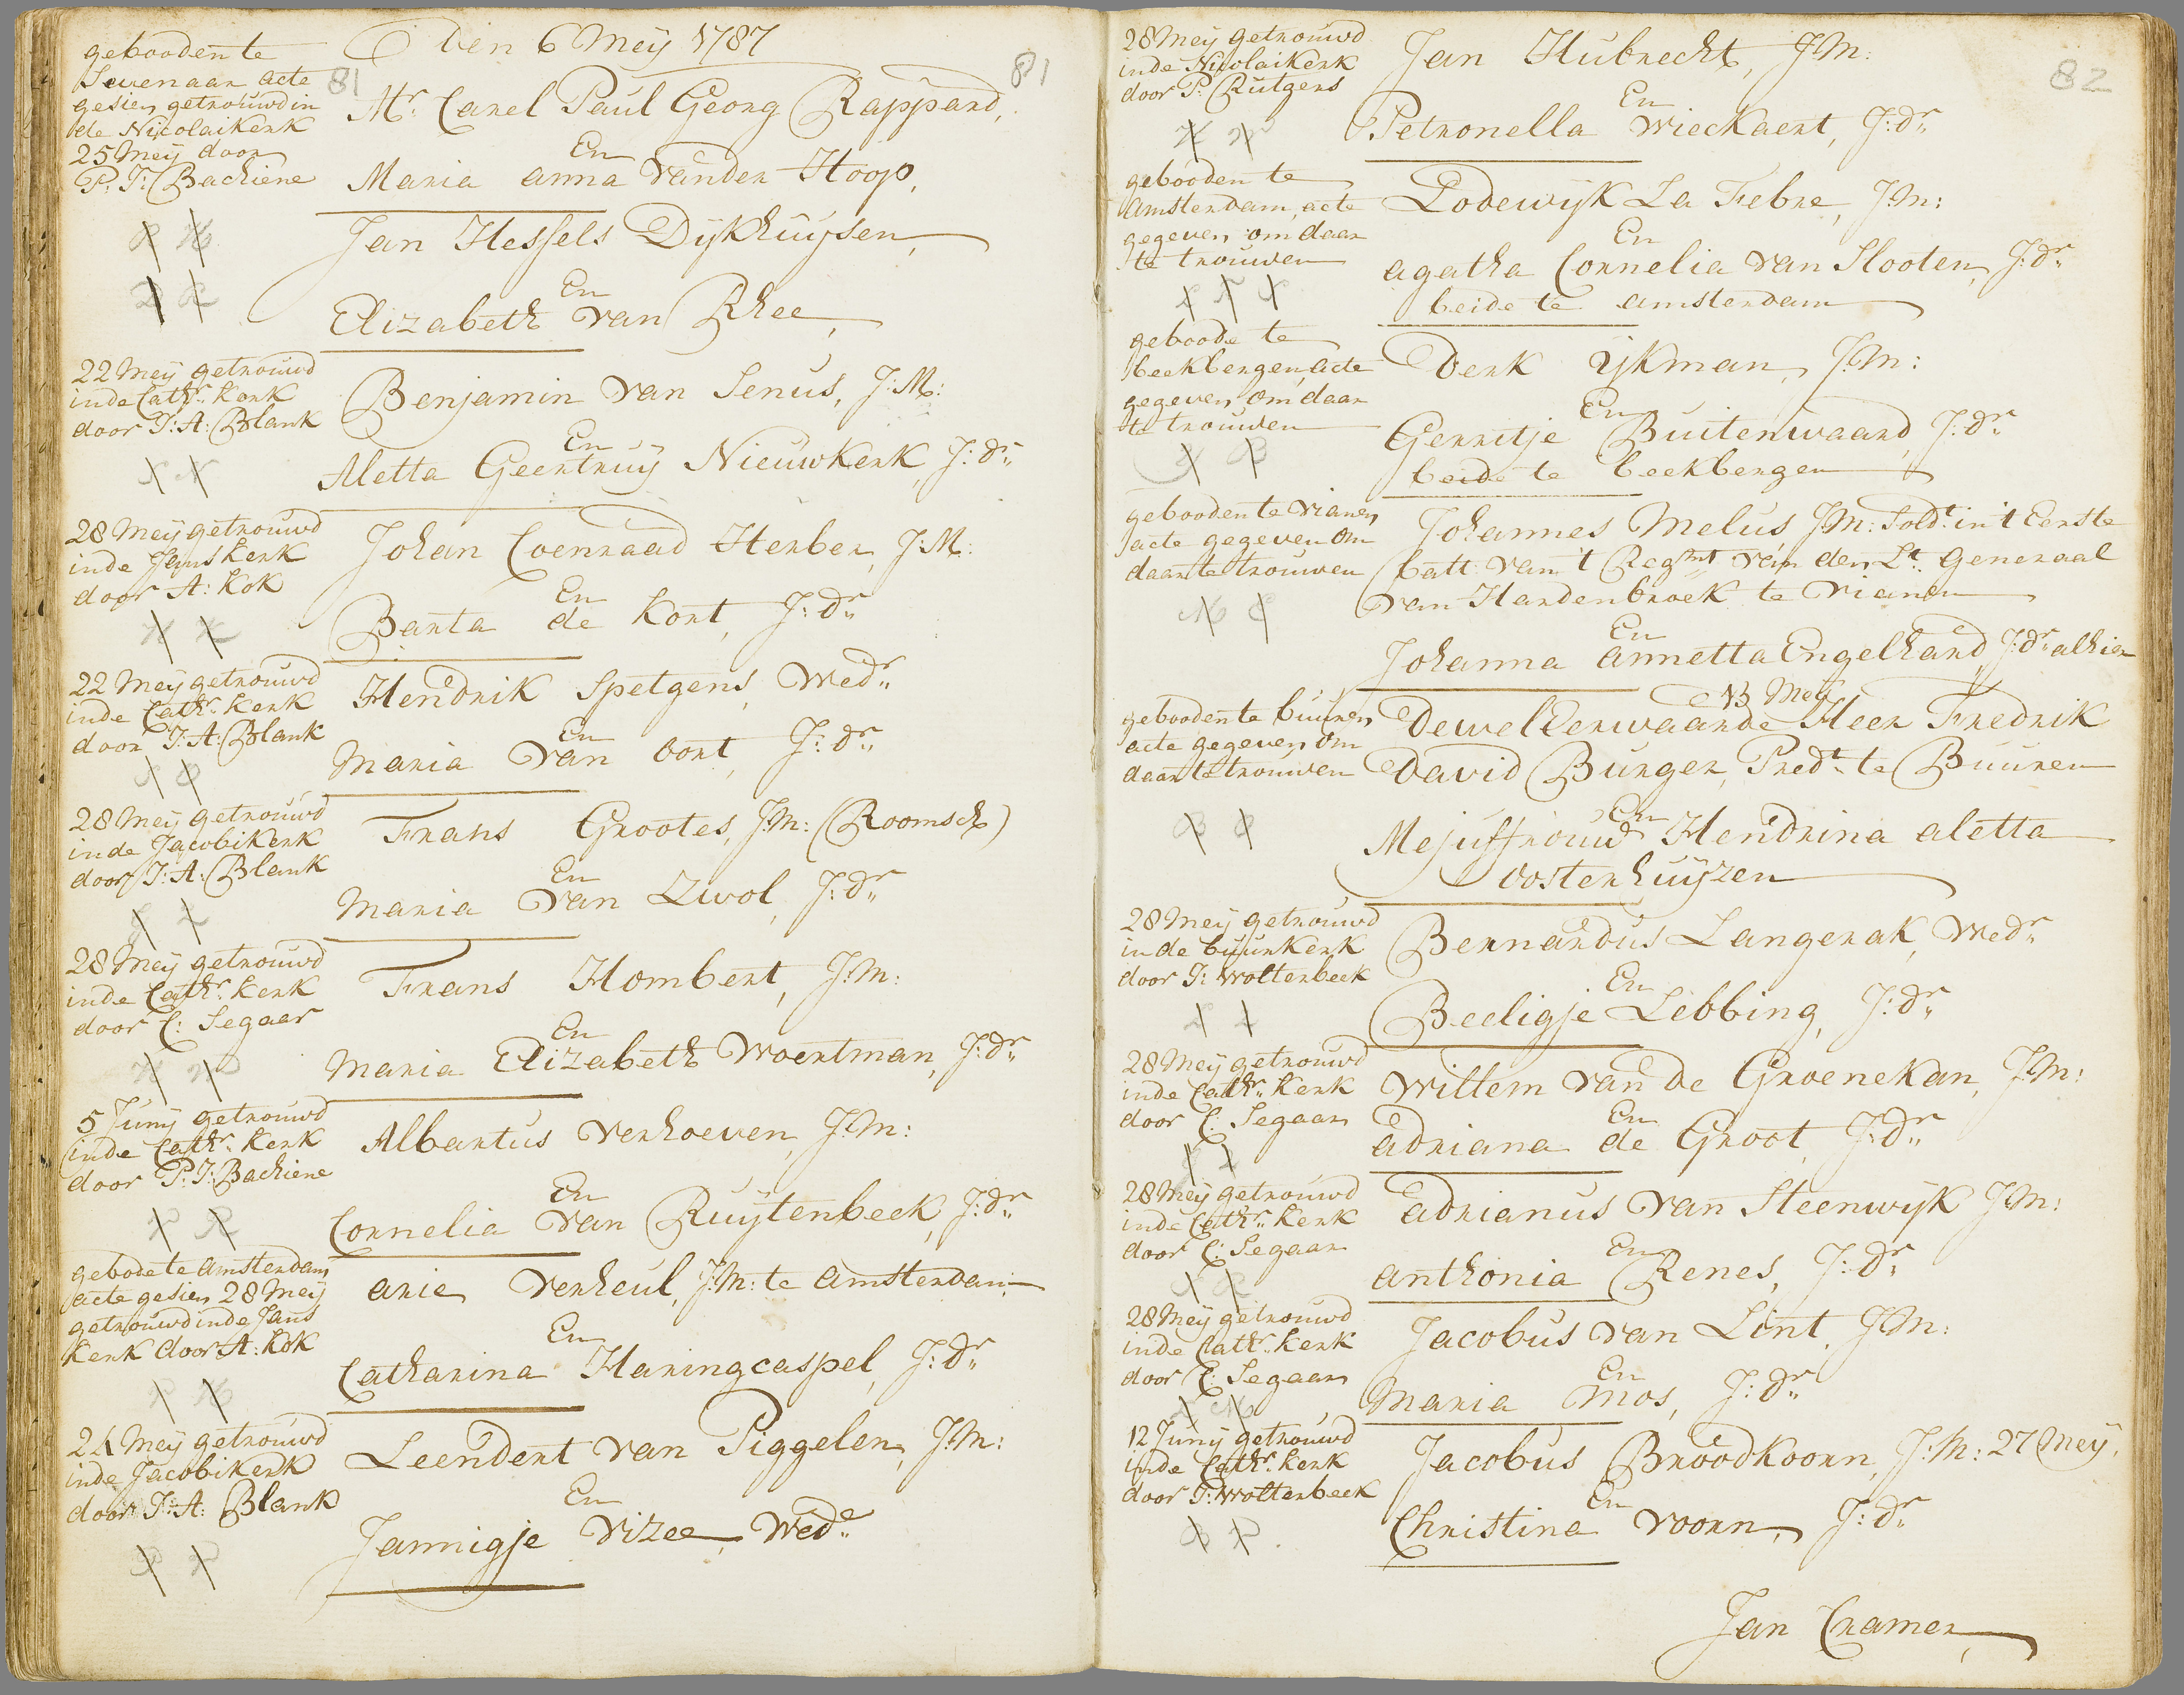 Den 6 Meij 1787
81
81
geboden te
Sevenaar acte
gesien getrouwd in
de Nicolaikerk
25 Meij door
P: J: Bachiene
Mr. Carel Paul Georg Rappard,
En
Maria anna vander Hoop,
Jan Hessels Dijkhuijsen,
En
Elizabeth van Rhee,
22 Meij getrouwd
inde Cathr. kerk
door J: A: Blank
Benjamin van Senus, J: M:
En
Aletta Geertruij Nieuwkerk, J: dr.
28 Meij getrouwd
inde Janskerk
door A: Kok
Johan Coenraad Herber, J: M:
En
Barta de Kort, J: dr.
22 Meij getrouwd
inde Cathr. kerk
door J: A: Blank
Hendrik Spetgens, Wedr.
En
Maria van oort, J: dr.
28 Meij getrouwd
inde Jacobikerk
door J: A: Blank
Frans Grootes, J: M: (Roomsch)
En
Maria van Zwol, J: dr.
28 Meij getrouwd
inde Cathr. kerk
door C: Segaar
Frans Hombert, J: M:
En
Maria Elizabeth Woertman, J: dr.
5 Junij getrouwd
inde Cathr. kerk
door P: J: Bachiene
Albartus verhoeven, J: M:
En
Cornelia van Ruijtenbeek, J: dr.
gebode te amsterdam
acte gesien 28 Meij
getrouwd inde Jans
kerk door A: Kok
arie verheul, J: M: te amsterdam
En
Catharina Haringcaspel, J: dr.
24 Meij getrouwd
inde Jacobikerk
door J: A: Blank
Leendert van Piggelen, J: M:
En
Jannigje vizee, Wede.
82
28 Meij getrouwd
inde Nicolaikerk
door P: Rutgers
Jan Hubrecht, J: M:
En
Petronella wieckaert, J: dr.
gebooden te
amsterdam, acte
gegeven om daar
te trouwen
Lodewijk La Febre, J: M:
En
agatha Cornelia van Slooten, J: dr.
beide te amsterdam
geboode te
beekbergen, acte
gegeven om daar
te trouwen
Derk ijkman, J: M:
En
Gerritje Buitenwaard, J: dr.
beide te beekbergen
gebooden te vianen
acte gegeven om
daar te trouwen
Johannes Melus J: M: Soldt. in 't Eerste
batt: van 't Regmt. van den Lt. Generaal
van Hardenbroek te vianen
En
Johanna annetta Engelhard, J: dr. alhier
13 Meij
gebooden te buuren,
acte gegeven om
daar te trouwen
DewelEerwaarde Heer Fredrik
David Burger, Predt. te Buuren
En
Mejuffrouw Hendrina aletta
oosterhuijzen
28 Meij getrouwd
in de buurkerk
door J: Wolterbeek
Bernardus Langerak, Wedr.
En
Beeligje Lebbing, J: dr.
28 Meij getrouwd
inde Cathr. kerk
door C: Segaar
Willem van de Groenekan, J: M:
En
adriana de Groot, J: dr.
28 Meij getrouwd
inde Cathr. kerk
door C: Segaar
adrianus van Steenwijk J: M:
En
anthonia Renes, J: dr.
28 Meij getrouwd
inde Cathr. kerk
door C: Segaar
Jacobus van Lint, J: M:
En
Maria Mos, J: dr.
12 Junij getrouwd
inde Cathr. kerk
door J: Wolterbeek
Jacobus Broodkoorn, J: M: 27 Meij.
En
Christina voorn, J: dr.
Jan Cramer,